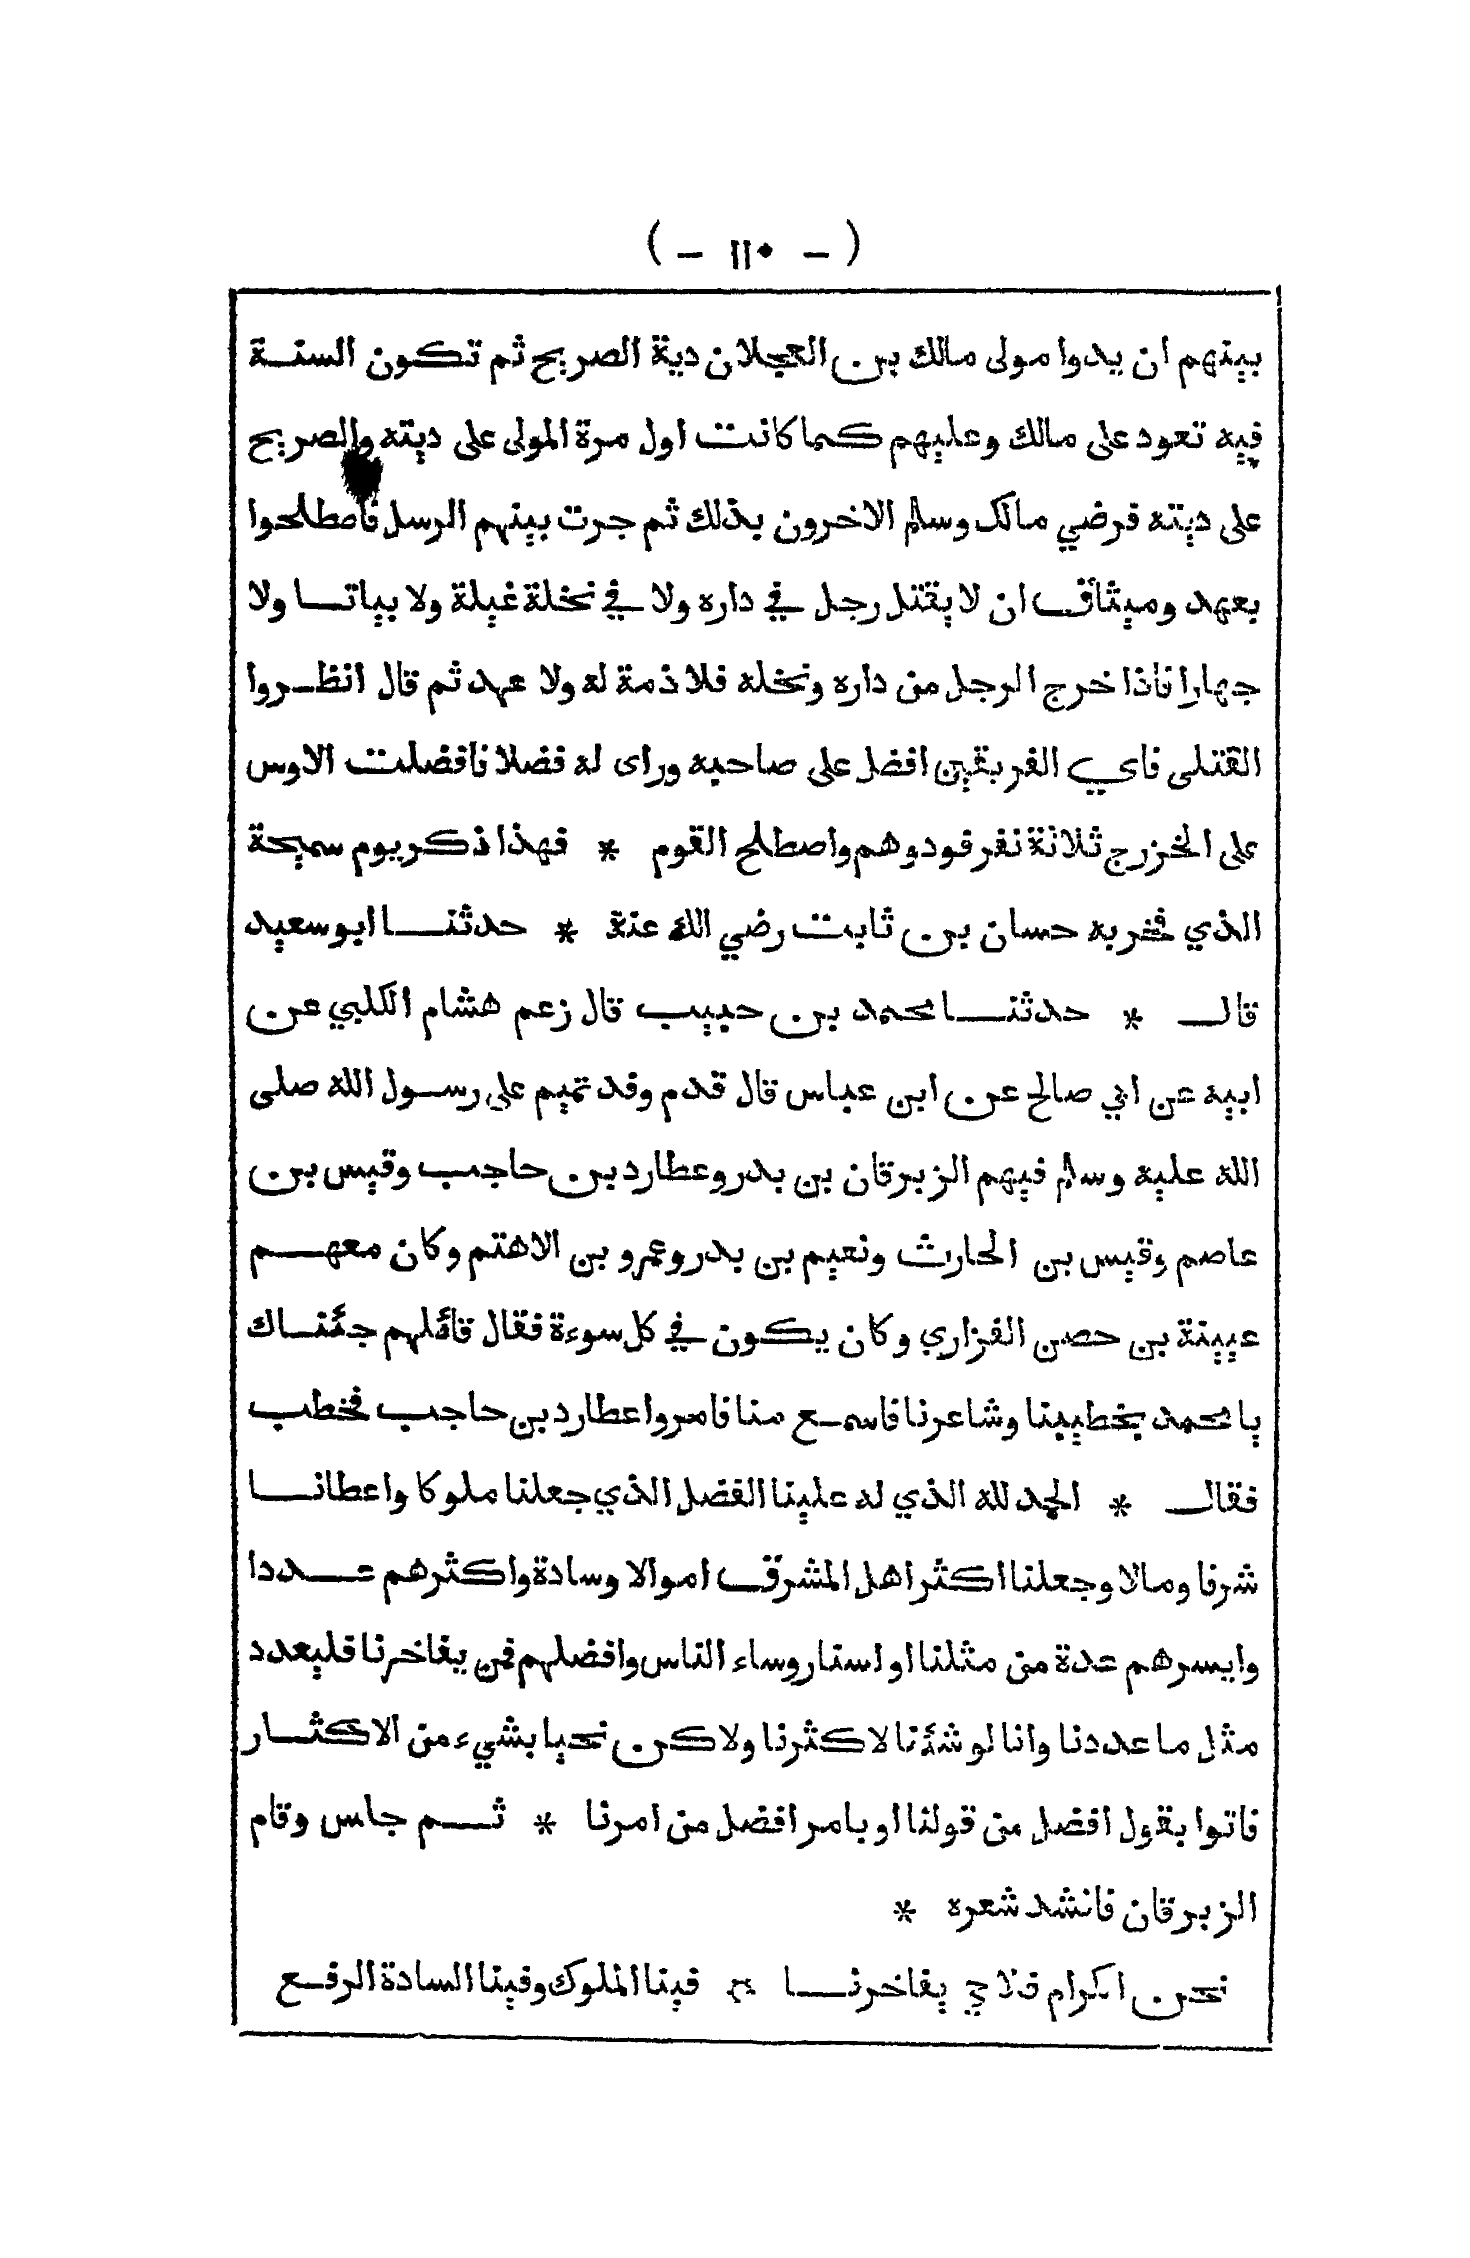 ( - ١١٠ - )
بينهم ان يدوا مولى مالك بن العجلان دية الصريح ثم تكون السنة
فيه تعود على مالك وعليهم كما كانت اول مرة المولى على ديته والصريح
على ديته فرضي مالك وسلم الاخرون بذلك ثم جرت بينهم الرسل فاصطلحوا
بعهد وميثاق ان لا يقتل رجل في داره ولا في نخلة غيلة ولا بياتا ولا
جهارا فاذا خرج الرجل من داره ونخله فلا ذمة له ولا عهد ثم قال انظروا
القتلى فاي الفريقين افضل على صاحبه وراى له فضلا فافضلت الاوس
على الخزرج ثلاثة نفر فودوهم واصطلح القوم * فهذا ذكر يوم سميحة
الذي فخر به حسان بن ثابت رضي الله عنة * حدثنا ابو سعيد
قال * حدثنا محمد بن حبيب قال زعم هشام الكلبي عن
ابيه عن ابي صالح عن ابن عباس قال قدم وفد تميم على رسول الله صلى
الله عليه وسلم فيهم الزبرقان بن بدر وعطارد بن حاجب وقيس بن
عاصم وقيس بن الحارث ونعيم بن بدر وعمرو بن الاهتم وكان معهم
عيينة بن حصن الفزاري وكان يكون في كل سوءة فقال قائلهم جئناك
يا محمد بخطيبنا وشاعرنا فاسمع منا فامروا عطارد بن حاجب فخطب
فقال * الحمد لله الذي له علينا الفضل الذي جعلنا ملوكا واعطانا
شرفا ومالا وجعلنا اكثر اهل المشرق اموالا وسادة واكثرهم عددا
وايسرهم عدة من مثلنا او لسنا روساء الناس وافضلهم فمن يفاخرنا فليعدد
مثل ما عددنا وانا لو شئنا لاكثرنا ولاكن نحيا بشيء من الاكثار
فاتوا بقول افضل من قولنا او بامر افضل من امرنا * ثم جلس وقام
الزبرقان فانشد شعره *
نحن اكرام فلا حي يفاخرنا * فينا الملوك وفينا السادة الرفع